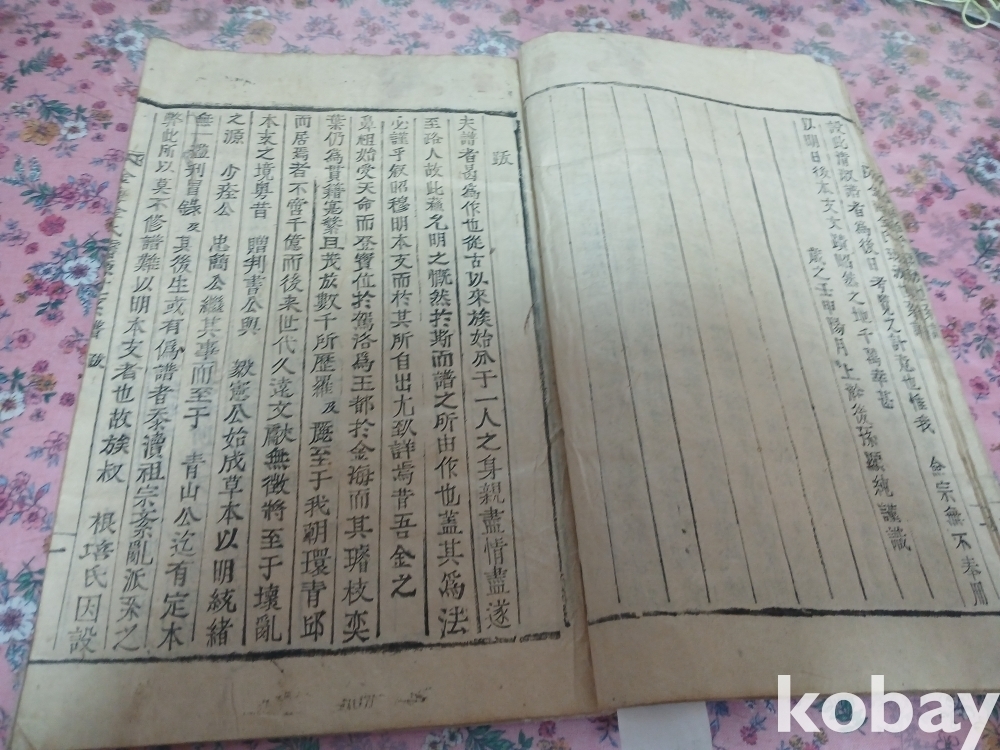 考覽之計意也惟我 金宗無不奉用
以明日後本支文蹟昭然之地千萬幸甚
歲之壬申陽月上 後孫顯統謹識
跋
夫譜者曷為作也從古以來族始分于一人之身親盡情盡遂
至路人故此蘓允明之慨然於斯而譜之所由作也蓋其為法
必謹乎叙昭穆明本支而於其所自出尤致詳焉昔吾金之
鼻祖始受天命而登寶位於駕洛為王都於金海而其璿枝奕
葉仍為貫籍寔繁且茂故數千所歷羅及麗至于我朝環青邱
而居焉者不啻千億而後来世代久遠文獻無徵將至于壞亂
本支之境粤昔 贈判書公與 毅憲公始成草本以明統緒
之源 少痊公 忠簡公繼其事而至于 青山公迄有定本
無一遺刋冒錄及其後生或有偽譜者忝瀆祖宗紊亂派系之
弊此所以莫不修譜難以明本支者也故族叔 根培氏因設
譜 跋 一
kobay